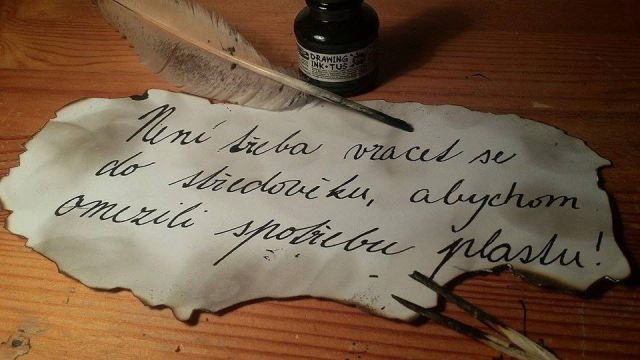 DRAWING
INK • TUS
Není třeba vracet se
do středověku, abychom
omezili spotřebu plastu!